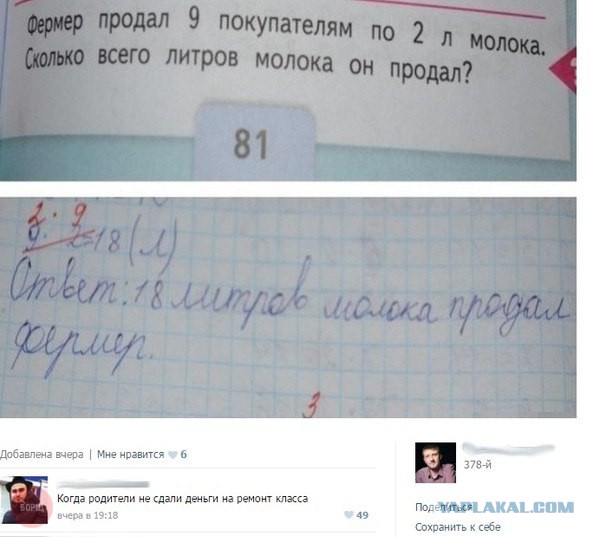 Фермер продал 9 покупателям по 2 л молока.
Сколько всего литров молока он продал?
81
2 · 9
9 · 2=18 (л)
Ответ: 18 литров молока продал
фермер.
3
Добавлена вчера | Мне нравится 6
378-й
Когда родители не сдали деньги на ремонт класса
вчера в 19:18
49
Поделиться
YAPLAKAL.COM
Сохранить к себе